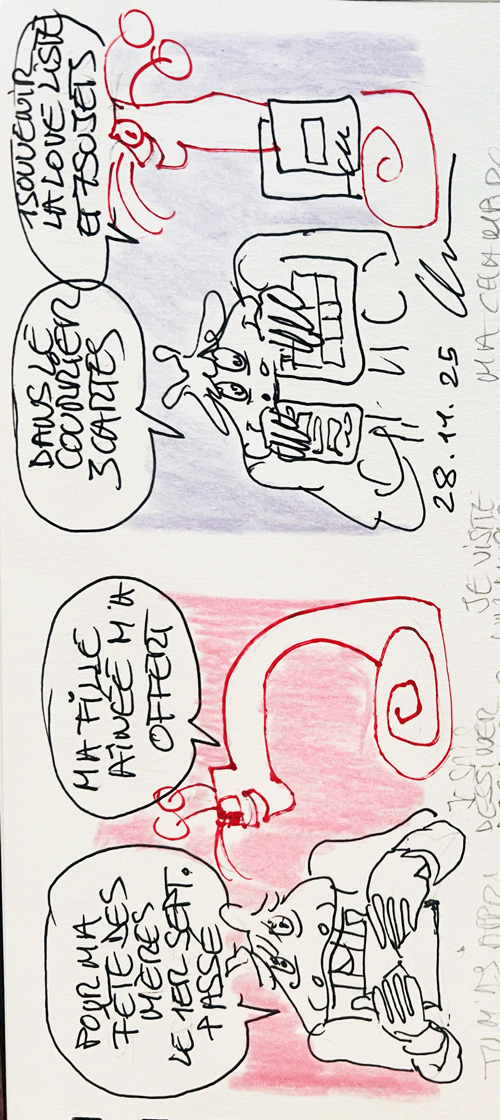 POUR MA
FÊTE DES
MÈRES
LE 1ER SEPT.
PASSÉ
MA FILLE
AÎNÉE M'A
OFFERT
DANS LE
COURRIER
3 CARTES
1 SOUVENIR
LA LOVE LISTE
ET 7 SUJETS
28.11.25
TU M'AS APPRI
DESSINER
JE VISITE